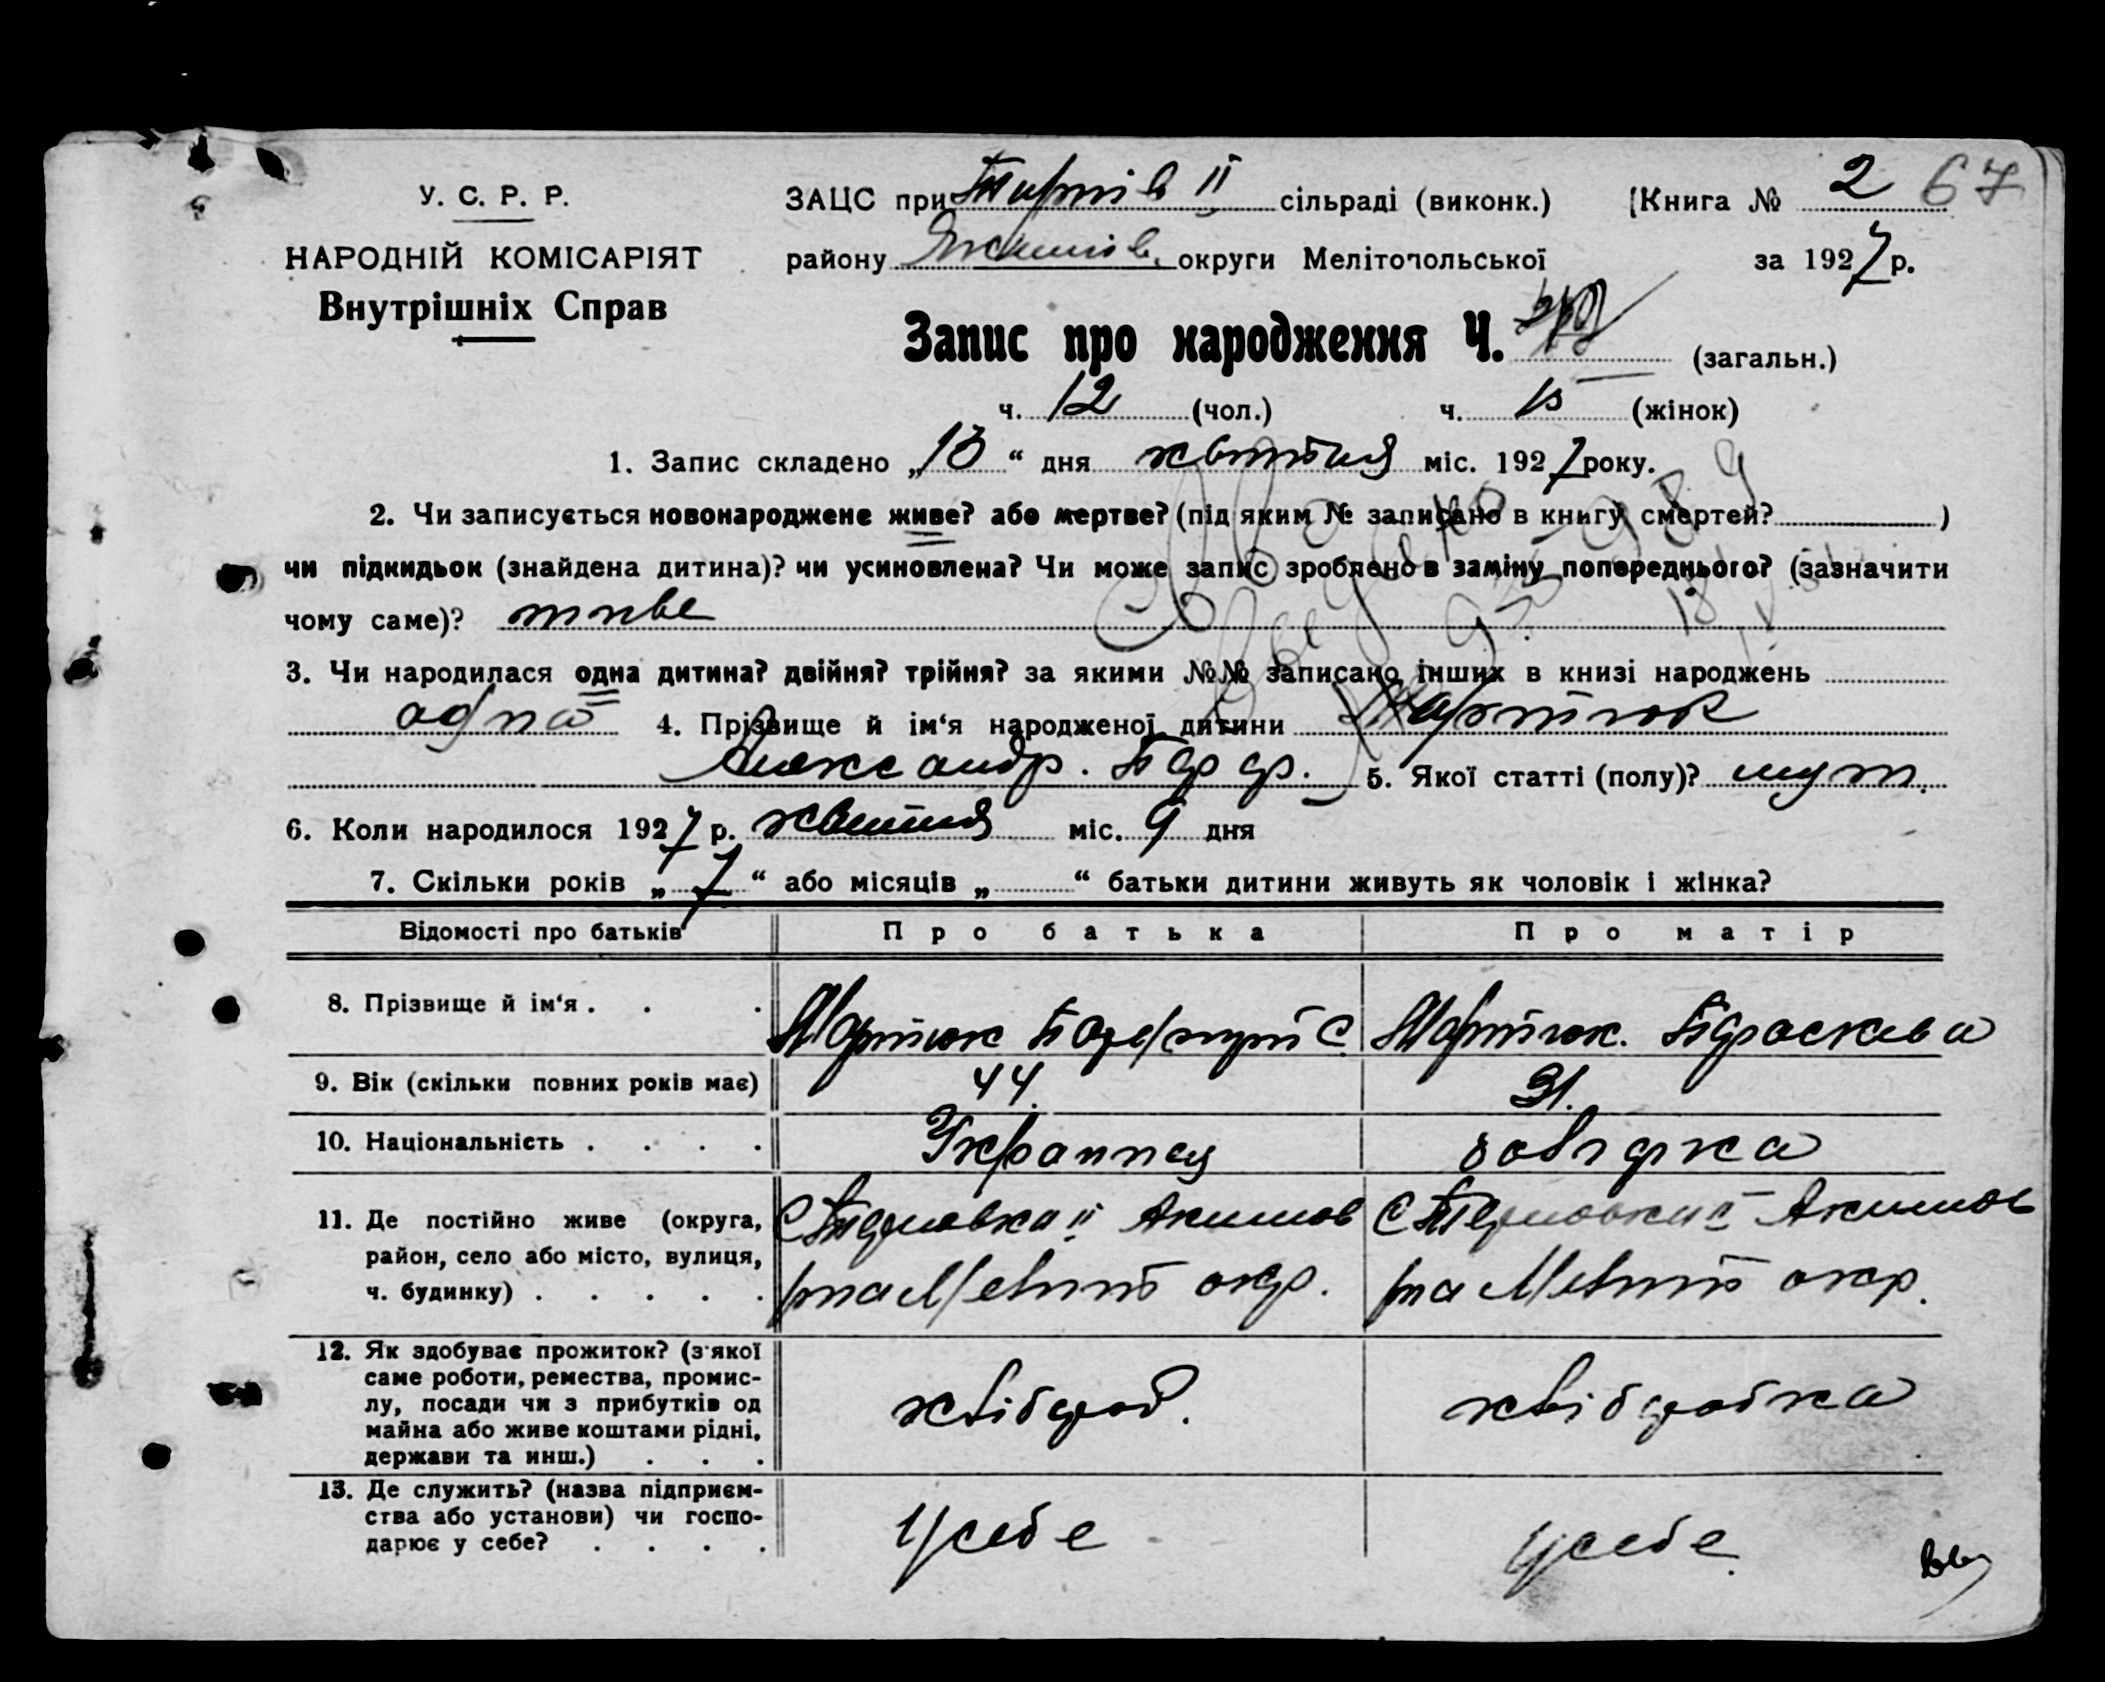 У. С. Р. Р.
НАРОДНІЙ КОМІСАРІЯТ
Внутрішніх Справ
ЗАЦС при II сільраді (виконк.) Книга № 2 67
району Якимів. округи Мелітопольської за 1927 р.
Запис про народження Ч. (загальн.)
ч. 12 (чол.) ч. 15 (жінок)
1. Запис складено „13“ дня квітня міс. 1927 року.
2. Чи записується новонароджене живе? або мертве? (під яким № записано в книгу смертей? )
чи підкидьок (знайдена дитина)? чи усиновлена? Чи може запис зроблено в заміну попереднього? (зазначити
чому саме)? живе
3. Чи народилася одна дитина? двійня? трійня? за якими №№ записано інших в книзі народжень
одна 4. Прізвище й ім‘я народженої дитини Мартюк
Александр. 5. Якої статті (полу)? муж.
6. Коли народилося 1927 р. квітня міс. 9 дня
7. Скільки років „7“ або місяців „ “ батьки дитини живуть як чоловік і жінка?
Відомості про батьків Про батька Про матір
8. Прізвище й ім‘я . . . Мартюк С. Мартюк. Параскева
9. Вік (скільки повних років має) 44. 31.
10. Національність . . . . Українец
11. Де постійно живе (округа, район, село або місто, вулиця, ч. будинку) . . . . .
С II Акимов С II Акимов
р на Меліт окр. р на Меліт окр.
12. Як здобуває прожиток? (з якої саме роботи, ремества, промис-
лу, посади чи з прибутків од
майна або живе коштами рідні,
держави та инш.) . . . хлібороб. хліборобка
13. Де служить? (назва підприєм-
ства або установи) чи госпо-
дарює у себе? . . . . У себе У себе